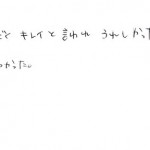 どと キレイと 言われ うれしかった
かった。